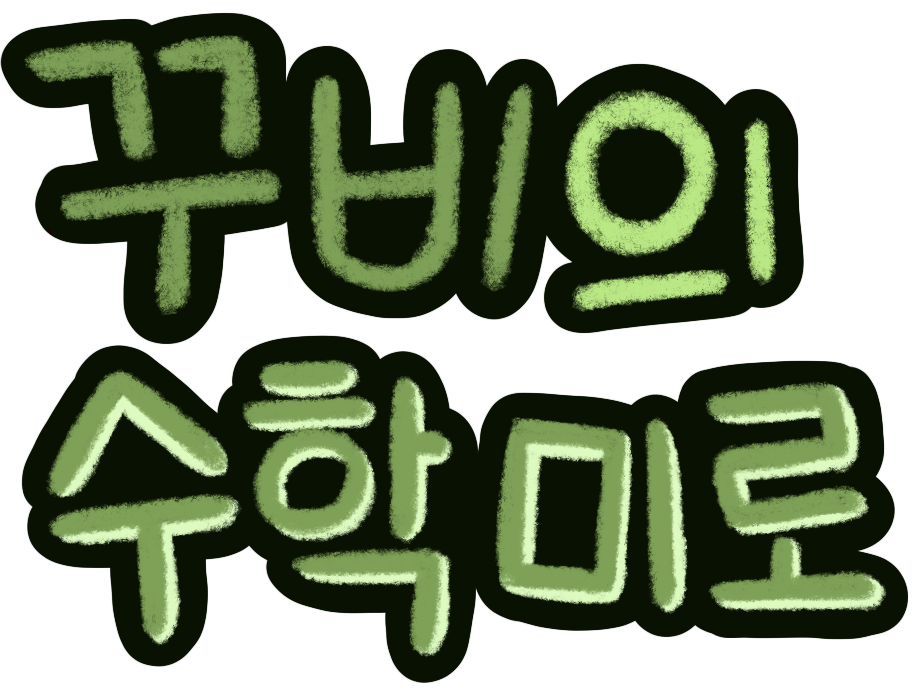 꾸비의
수학미로